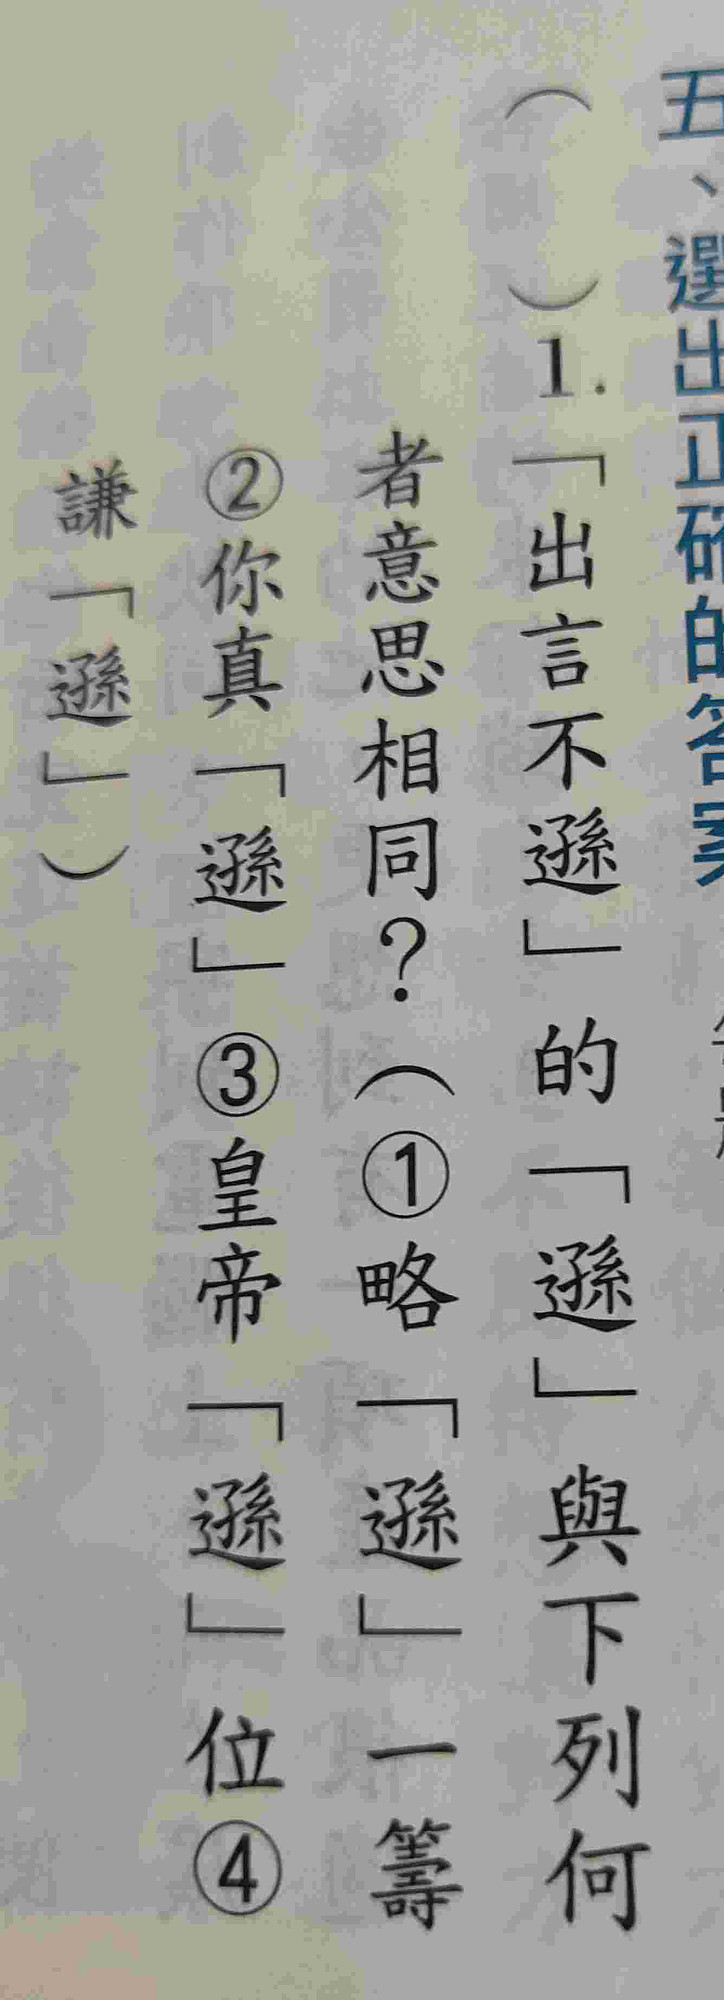 五、選出正確的答案
（　）1.「出言不遜」的「遜」與下列何
者意思相同？（①略「遜」一籌
②你真「遜」③皇帝「遜」位④
謙「遜」）